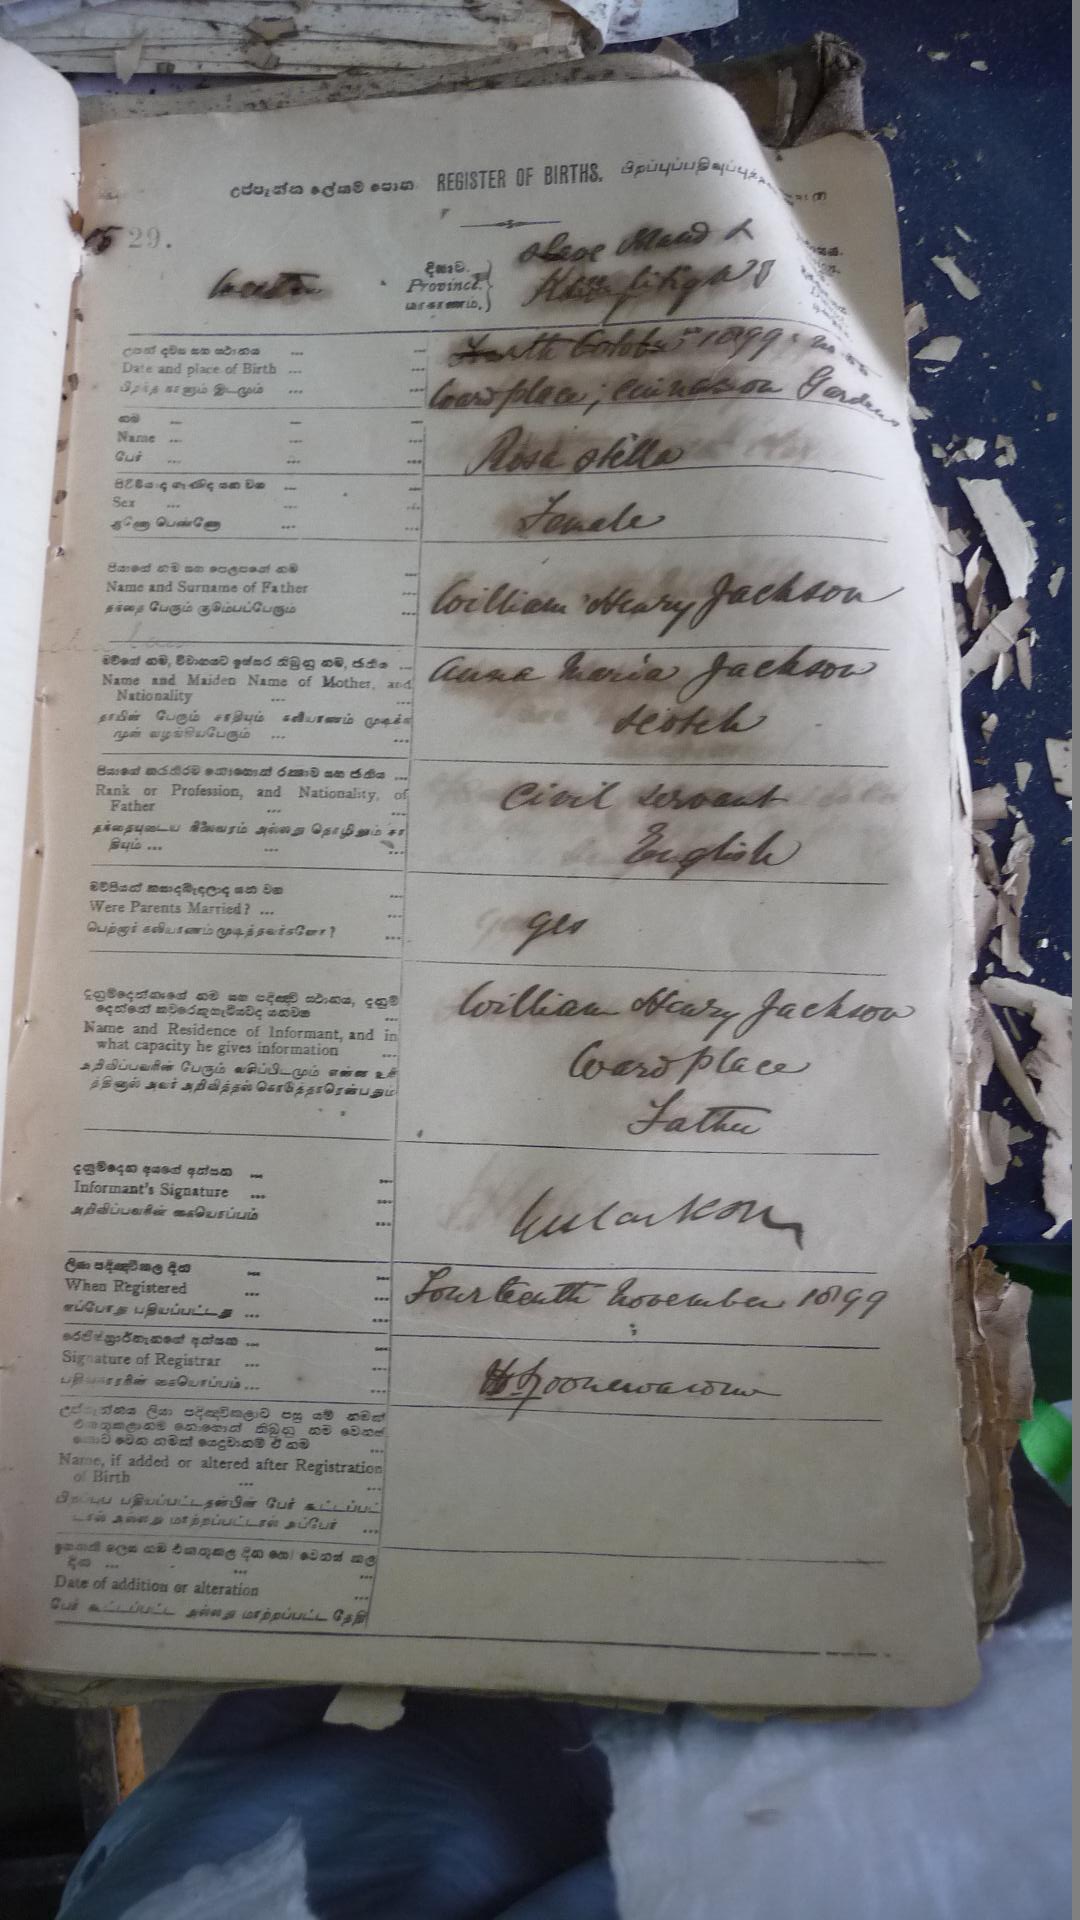 උප්පැන්න ලේකම් පොත. REGISTER OF BIRTHS. பிறப்புப்பதிவுப்பு
29.
දිසාව.
Western Province. Slave Island &
மாகாணம்.
උපන් දවස සහ ස්ථානය ... ...
Date and place of Birth ... ... Fourth October 1899: No. 55
பிறந்த காளும் இடமும் ... ... Ward place; Cinnamon Gardens
නම ... ... ...
Name ... ... ... Rosa Stella
பேர் ... ... ...
පිරිමියාද ගෑණිද යන වග ... ...
Sex ... ... ... Female
ஆணோ பெண்ணோ ... ...
පියාගේ නම සහ පෙලපතේ නම ...
Name and Surname of Father ... William Henry Jackson
தந்தை பேரும் குடும்பப்பேரும் ...
මව්ගේ නම, විවාහයට ඉස්සර තිබුනු නම, ජාතිය ...
Name and Maiden Name of Mother, and Anna Maria Jackson
Nationality ... ... Scotch
தாயின் பேரும் சாதியும் கலியாணம் முடிக்க
முன் வழங்கியபேரும் ... ...
පියාගේ තරාතිරම නොහොත් රක්ෂාව සහ ජාතිය ...
Rank or Profession, and Nationality, of Civil Servant
Father ... ... English
தந்தையுடைய நிலைவரம் அல்லது தொழிலும் சா
தியும் ... ... ...
මව්පියන් කසාදබැඳලාද යන වග ...
Were Parents Married? ... ... yes
பெற்றார் கலியாணம் முடித்தவர்களோ? ...
දැනුම්දෙන්නාගේ නම සහ පදිංචි ස්ථානය, දැනුම්
දෙන්නේ කවරෙකුහැටියටද යනවග ...
Name and Residence of Informant, and in William Henry Jackson
what capacity he gives information ... Ward place
அறிவிப்பவரின் பேரும் வசிப்பிடமும் என்ன உரி Father
த்தினால் அவர் அறிவித்தல் கொடுத்தாரென்பதும்
දැනුම්දෙන අයගේ අත්සන ... ...
Informant's Signature ... ...
அறிவிப்பவரின் கையொப்பம் ...
ලියා පදිංචිකල දින ... ...
When Registered ... ... Fourteenth November 1899
எப்போது பதியப்பட்டது ... ...
රෙජිස්ත්‍රාර්තැනගේ අත්සන ... ...
Signature of Registrar ... ...
பதிவுகாரரின் கையொப்பம் ... ...
උප්පැන්නය ලියා පදිංචිකලාට පසු යම් නමක්
එකතුකලානම් නොහොත් තිබුනු නම වෙනස්
කොට වෙන නමක් යෙදුවානම් ඒ නම ...
Name, if added or altered after Registration
of Birth ... ...
பிறப்புப் பதியப்பட்டதன்பின் பேர் கூட்டப்பட்
டால் அல்லது மாற்றப்பட்டால் அப்பேர் ...
ඉහතකී ලෙස නම එකතුකල දින හෝ වෙනස් කල
දින ... ... ...
Date of addition or alteration ...
பேர் கூட்டப்பட்ட அல்லது மாற்றப்பட்ட தேதி